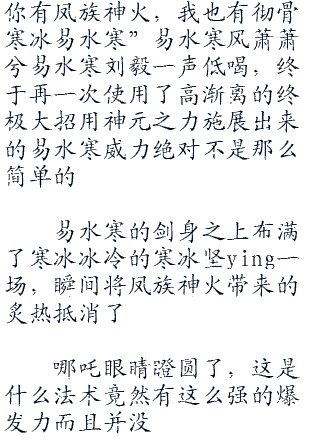 你有凤族神火，我也有彻骨
寒冰易水寒”易水寒风萧萧
兮易水寒刘毅一声低喝，终
于再一次使用了高渐离的终
极大招用神元之力施展出来
的易水寒威力绝对不是那么
简单的
易水寒的剑身之上布满
了寒冰冰冷的寒冰坚ying一
场，瞬间将凤族神火带来的
炙热抵消了
哪吒眼睛瞪圆了，这是
什么法术竟然有这么强的爆
发力而且并没